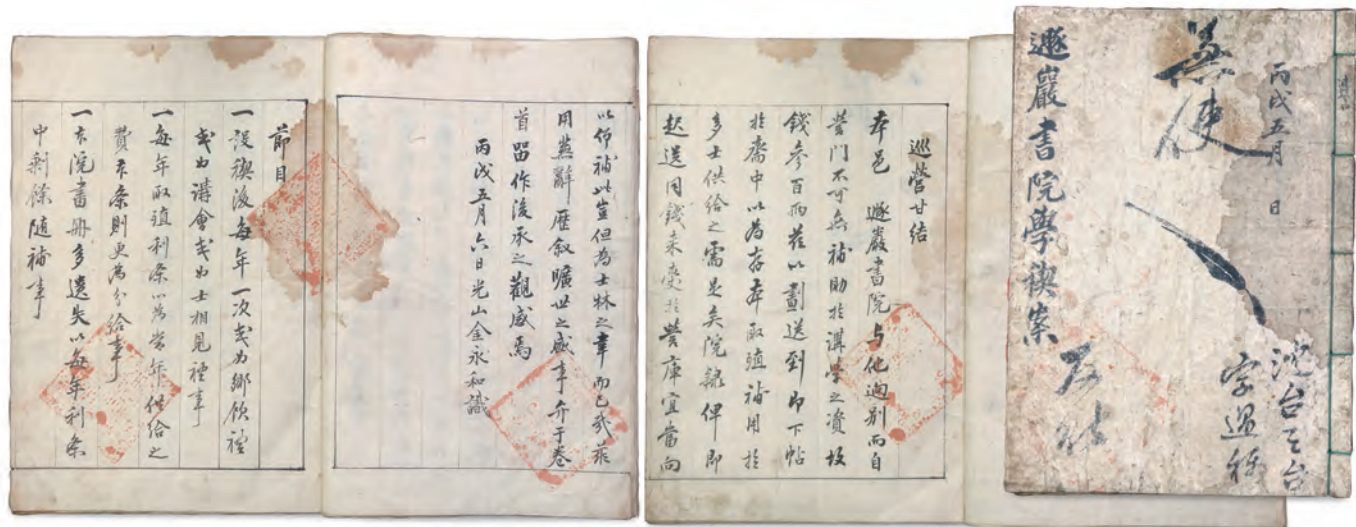 丙戌五月 日
遯巖書院學稧案
巡營甘結
本邑 遯巖書院与他逈別而自
營門不可無補助於講學之資故
錢參百両玆以劃送到即下帖
於齋中以爲存本取殖補用於
多士供給之需是矣院隷俾即
起送同錢來受於營庫宜當向
以仰補此豈但爲士林之幸而已哉玆
用蕪辭歷叙曠世之盛事弁于卷
首留作後承之觀感焉
丙戌五月六日光山金永和識
節目
一設稧後每年一次或爲鄕飮禮
或爲講會或爲士相見禮事
一每年取殖利條以爲當年供給之
費本條則更爲分給事
一本院書冊多遺失以每年利條
中剩餘隨補事